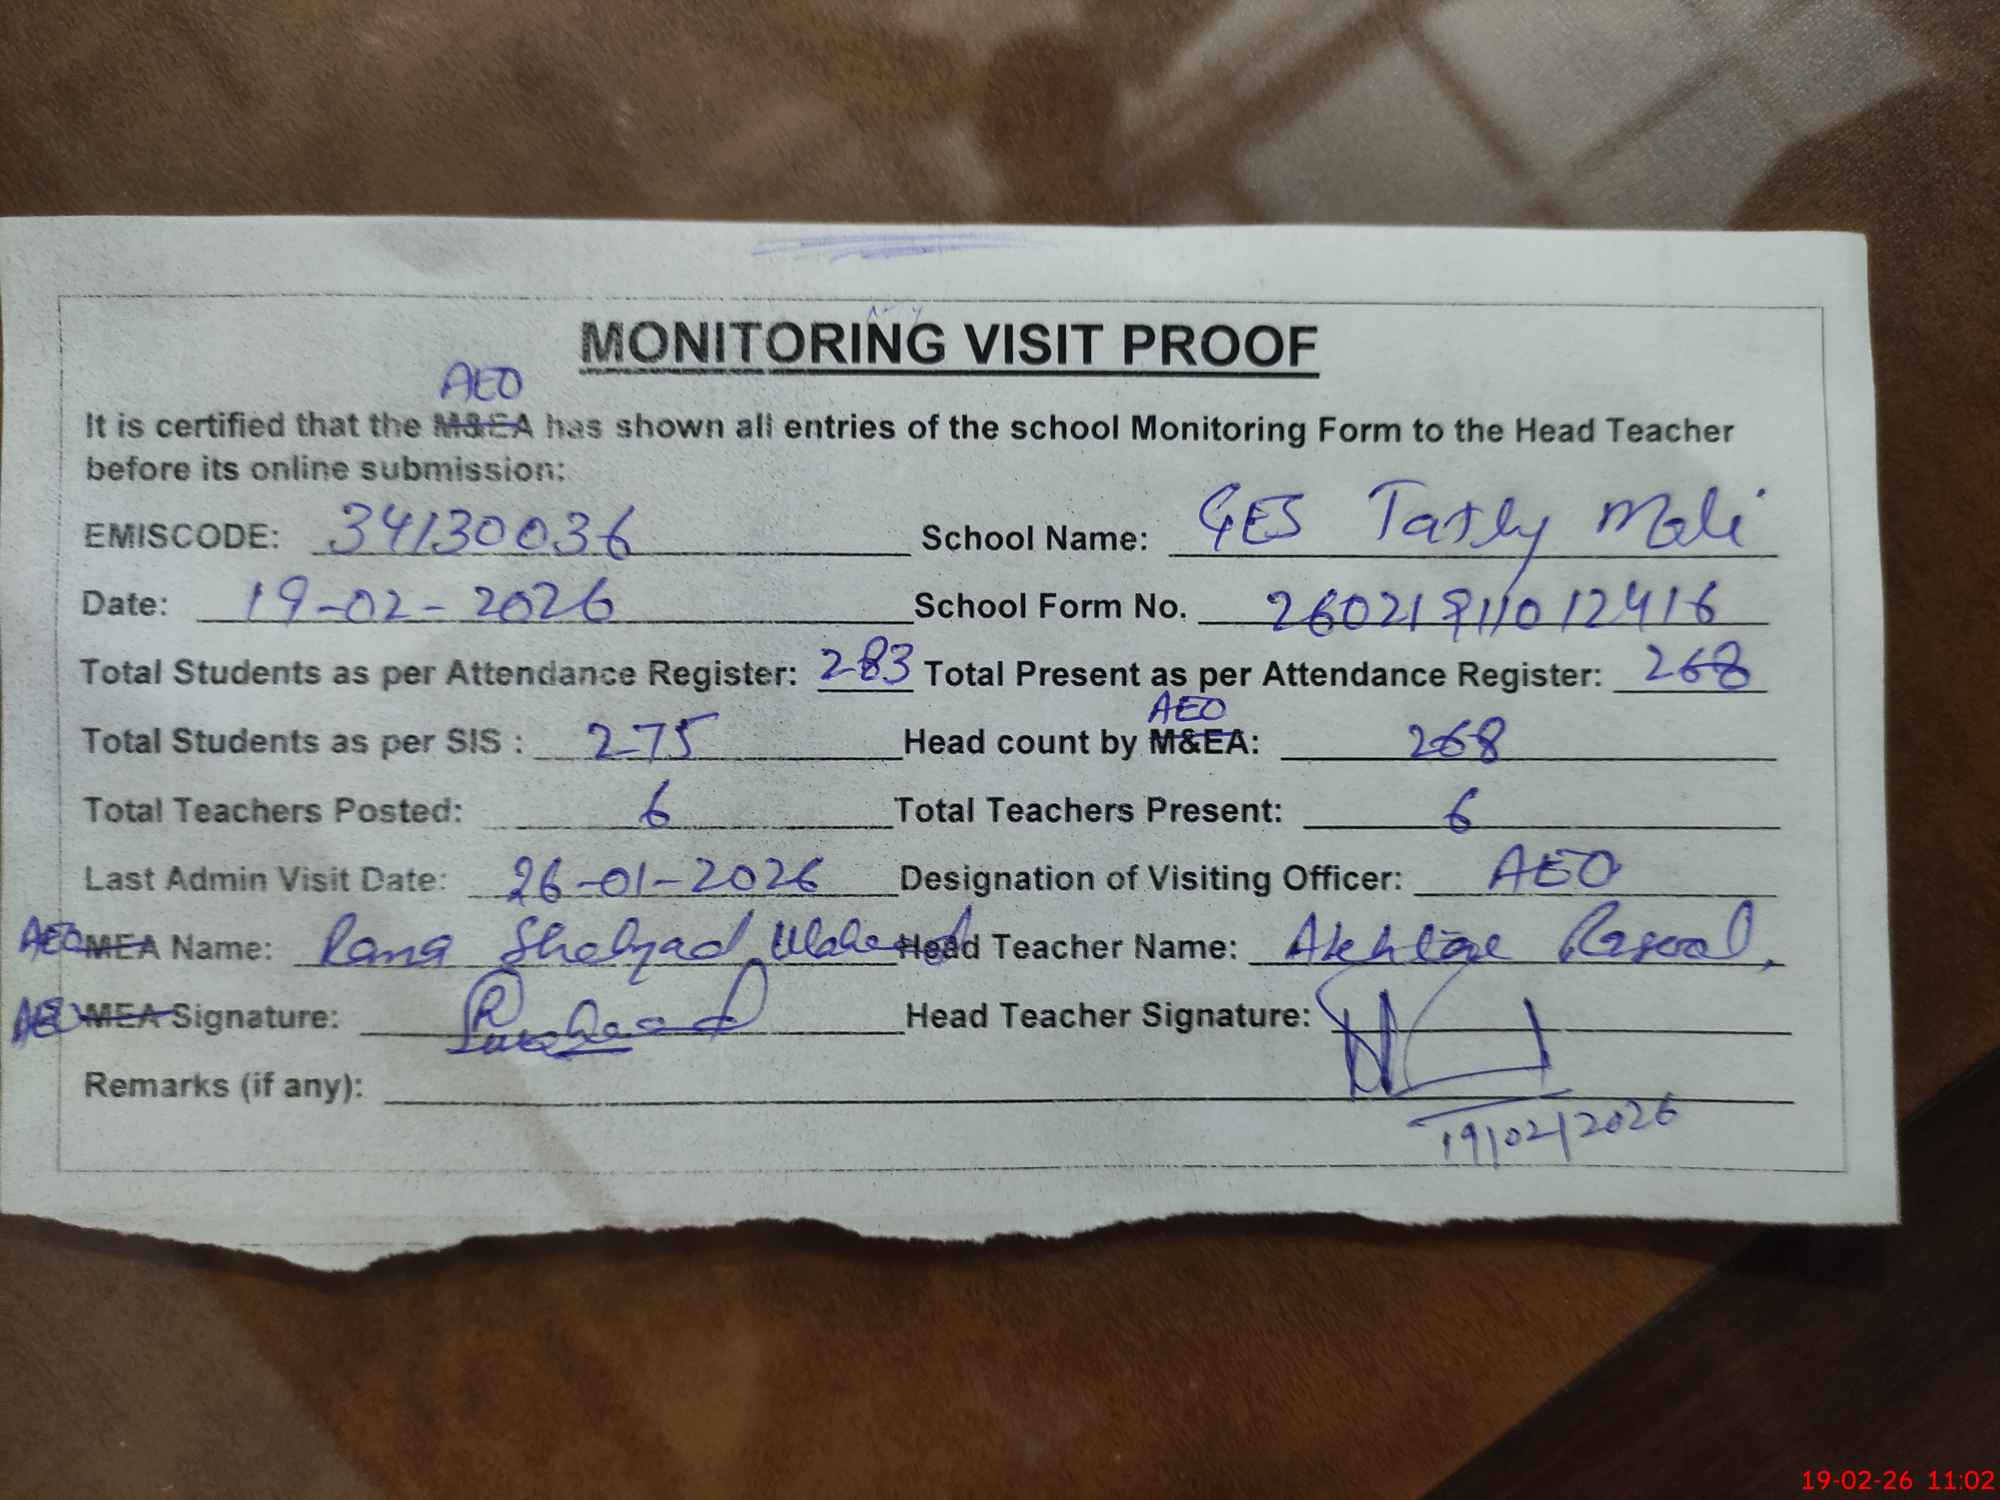 MONITORING VISIT PROOF
AEO
It is certified that the M&EA has shown all entries of the school Monitoring Form to the Head Teacher
before its online submission:
EMISCODE: 34130036 School Name: GES Tatly Mali
Date: 19-02-2026 School Form No. 26021911012416
Total Students as per Attendance Register: 283 Total Present as per Attendance Register: 268
AEO
Total Students as per SIS : 275 Head count by M&EA: 268
Total Teachers Posted: 6 Total Teachers Present: 6
Last Admin Visit Date: 26-01-2026 Designation of Visiting Officer: AEO
AEO MEA Name: Rana Shehzad Waheed Head Teacher Name: Akhtar Rasool
AEO MEA Signature: Head Teacher Signature:
Remarks (if any):
19/02/2026
19-02-26 11:02